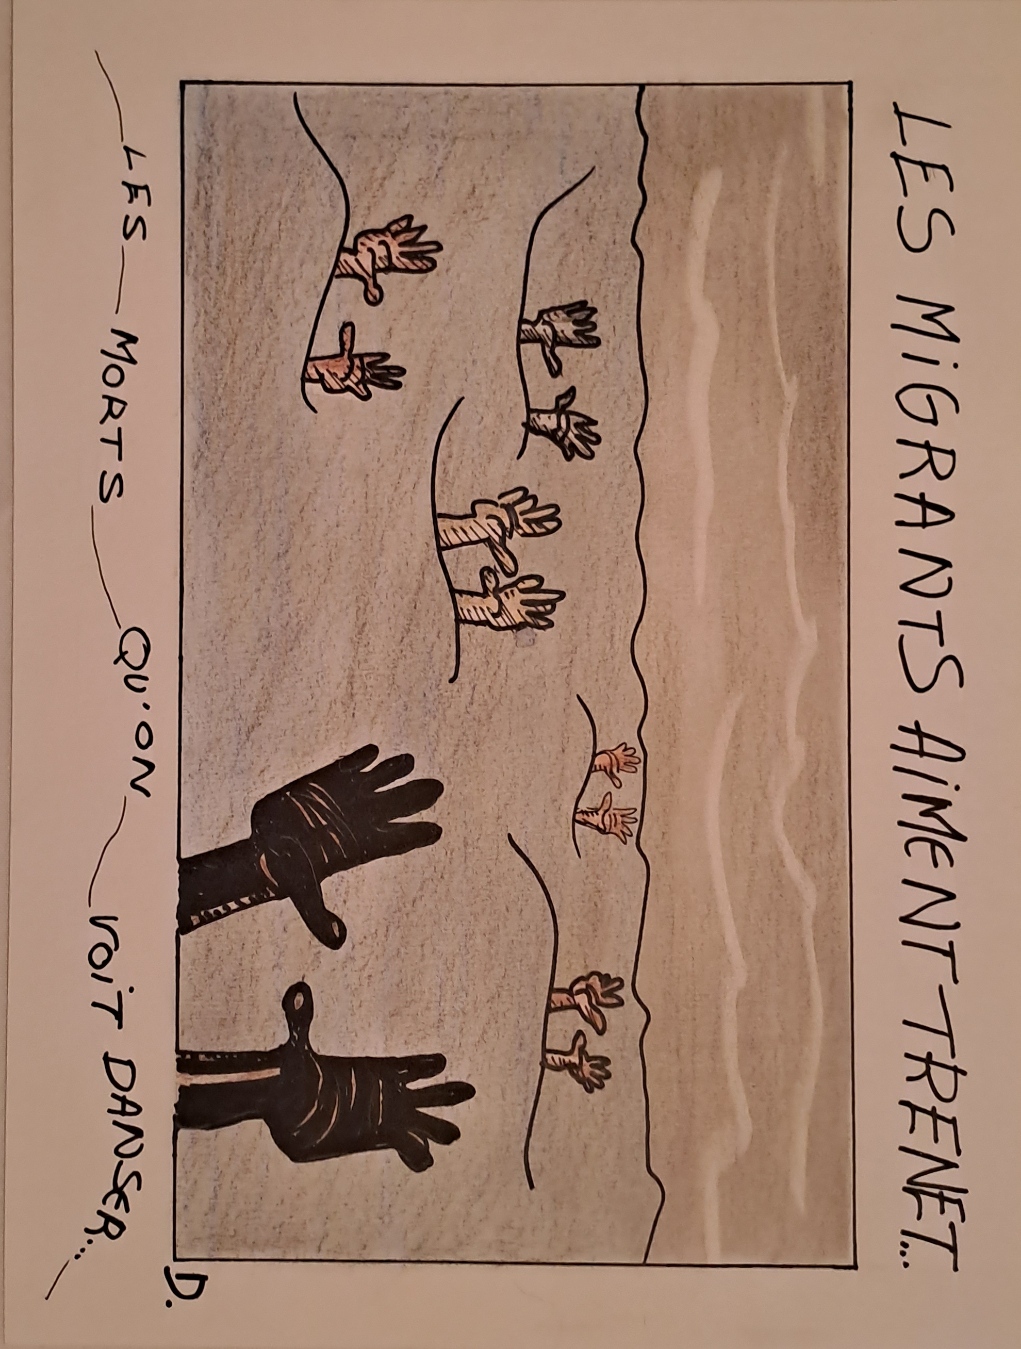 LES MiGRANTS AiMENT TRENET...
LES MORTS QU'ON VOiT DANSER...
D.